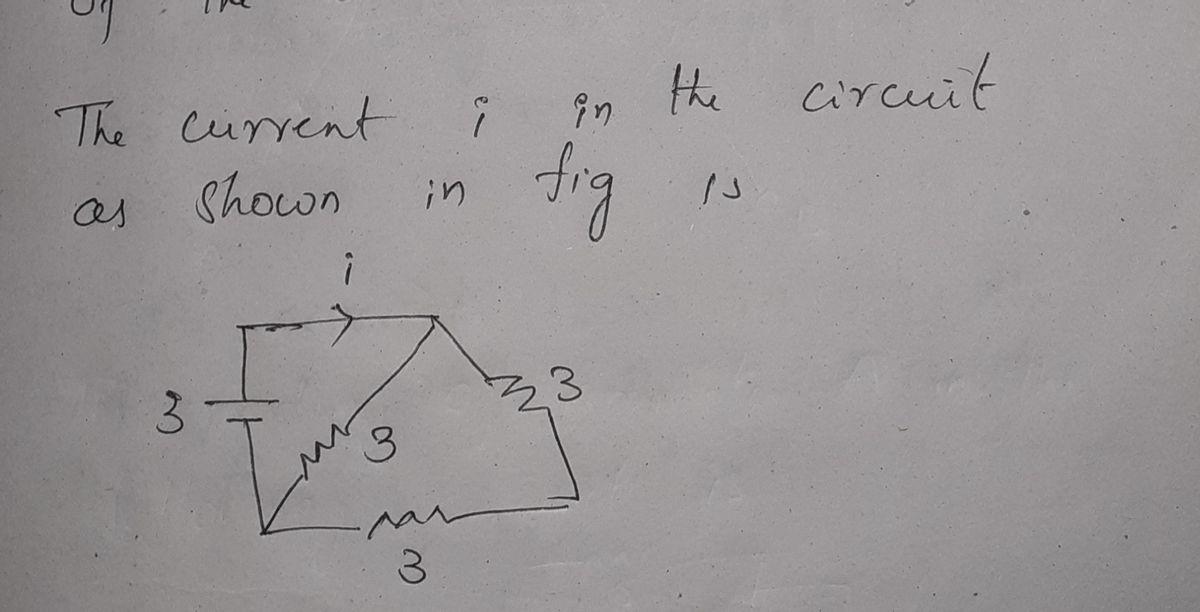 The current i in the circuit
as shown in fig is
i
3
3
3
3